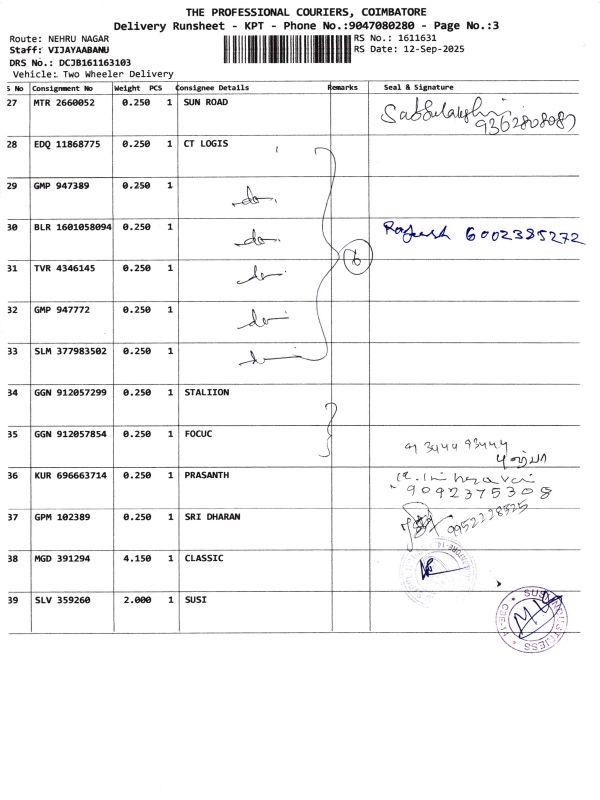 THE PROFESSIONAL COURIERS, COIMBATORE
Delivery Runsheet - KPT - Phone No.:9047080280 - Page No.:3
Route: NEHRU NAGAR RS No.: 1611631
Staff: VIJAYAABANU RS Date: 12-Sep-2025
DRS No.: DCJB161163103
Vehicle: Two Wheeler Delivery
S No Consignment No Weight PCS Consignee Details Remarks Seal & Signature
27 MTR 2660052 0.250 1 SUN ROAD
9362808087
28 EDQ 11868775 0.250 1 CT LOGIS
29 GMP 947389 0.250 1 do.
30 BLR 1601058094 0.250 1 do. Rajesh 6002385272
6
31 TVR 4346145 0.250 1 do
32 GMP 947772 0.250 1 do
33 SLM 377983502 0.250 1 do
34 GGN 912057299 0.250 1 STALIION
35 GGN 912057854 0.250 1 FOCUC
91 3444 93444
36 KUR 696663714 0.250 1 PRASANTH
9092375308
37 GPM 102389 0.250 1 SRI DHARAN 9952228325
38 MGD 391294 4.150 1 CLASSIC
39 SLV 359260 2.000 1 SUSI